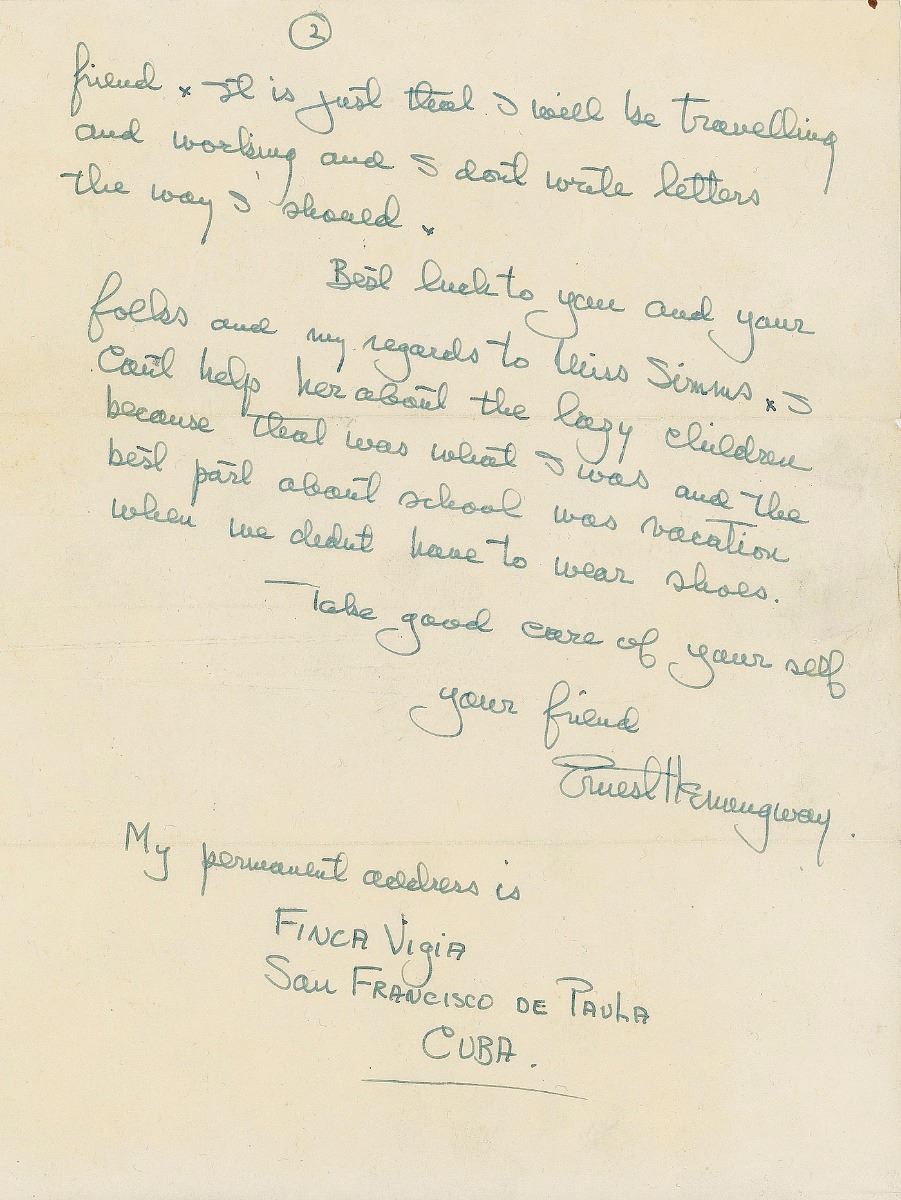 2
friend x It is just that I will be travelling
and working and I dont write letters
the way I should x
Best luck to you and your
folks and my regards to Miss Simms x I
Cant help her about the lazy children
because that was what I was and the
best part about school was vacation
when we didnt have to wear shoes.
Take good care of your self
your friend
Ernest Hemingway.
My permanent address is
FINCA VigiA
San FRANCISCO DE PAULA
CUBA.